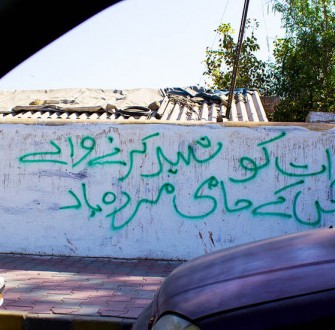 کو شہید کرنے والے
کے حامی مردہ باد